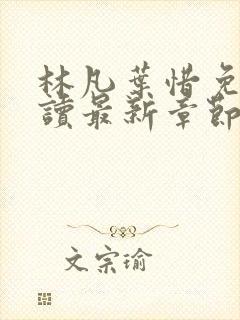 林凡葉惜免
讀最新章節
文宗瑜